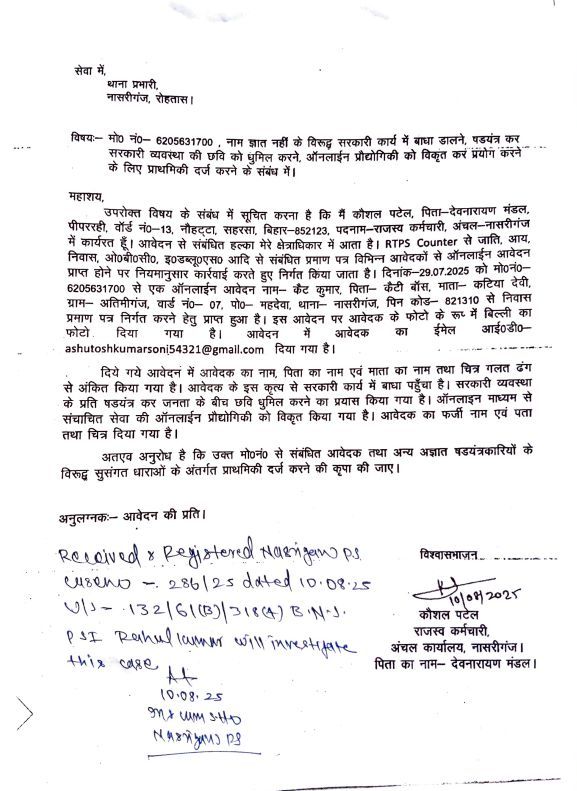 सेवा में,
थाना प्रभारी,
नासरीगंज, रोहतास।
विषयः– मो0 नं0– 6205631700 , नाम ज्ञात नहीं के विरूद्ध सरकारी कार्य में बाधा डालने, षडयंत्र कर
सरकारी व्यवस्था की छवि को धुमिल करने, ऑनलाईन प्रौद्योगिकी को विकृत कर प्रयोग करने
के लिए प्राथमिकी दर्ज करने के संबंध में।
महाशय,
उपरोक्त विषय के संबंध में सूचित करना है कि मैं कौशल पटेल, पिता–देवनारायण मंडल,
पीपररही, वॉर्ड नं0–13, नौहट्टा, सहरसा, बिहार–852123, पदनाम–राजस्व कर्मचारी, अंचल–नासरीगंज
में कार्यरत हूँ। आवेदन से संबंधित हल्का मेरे क्षेत्राधिकार में आता है। RTPS Counter से जाति, आय,
निवास, ओ0बी0सी0, इ0डब्लू0एस0 आदि से संबंधित प्रमाण पत्र विभिन्न आवेदकों से ऑनलाईन आवेदन
प्राप्त होने पर नियमानुसार कार्रवाई करते हुए निर्गत किया जाता है। दिनांक–29.07.2025 को मो0नं0–
6205631700 से एक ऑनलाईन आवेदन नाम– कैट कुमार, पिता– कैटी बॉस, माता– कटिया देवी,
ग्राम– अतिमीगंज, वार्ड नं0– 07, पो0– महदेवा, थाना– नासरीगंज, पिन कोड– 821310 से निवास
प्रमाण पत्र निर्गत करने हेतु प्राप्त हुआ है। इस आवेदन पर आवेदक के फोटो के रूप में बिल्ली का
फोटो दिया गया है। आवेदन में आवेदक का ईमेल आई0डी0–
ashutoshkumarsoni54321@gmail.com दिया गया है।
दिये गये आवेदन में आवेदक का नाम, पिता का नाम एवं माता का नाम तथा चित्र गलत ढंग
से अंकित किया गया है। आवेदक के इस कृत्य से सरकारी कार्य में बाधा पहुँचा है। सरकारी व्यवस्था
के प्रति षडयंत्र कर जनता के बीच छवि धुमिल करने का प्रयास किया गया है। ऑनलाइन माध्यम से
संचाचित सेवा की ऑनलाईन प्रौद्योगिकी को विकृत किया गया है। आवेदक का फर्जी नाम एवं पता
तथा चित्र दिया गया है।
अतएव अनुरोध है कि उक्त मो0नं0 से संबंधित आवेदक तथा अन्य अज्ञात षडयंत्रकारियों के
विरूद्ध सुसंगत धाराओं के अंतर्गत प्राथमिकी दर्ज करने की कृपा की जाए।
अनुलग्नकः– आवेदन की प्रति।
Received & Registered Nasriganj P.S.
case no – 286/25 dated 10.08.25
U/S – 132/61(B)/318(4) B.N.S.
PSI Rahul Kumar will investigate
this case
10.08.25
SHO
Nasriganj PS
विश्वासभाजन
10/08/2025
कौशल पटेल
राजस्व कर्मचारी,
अंचल कार्यालय, नासरीगंज।
पिता का नाम– देवनारायण मंडल।